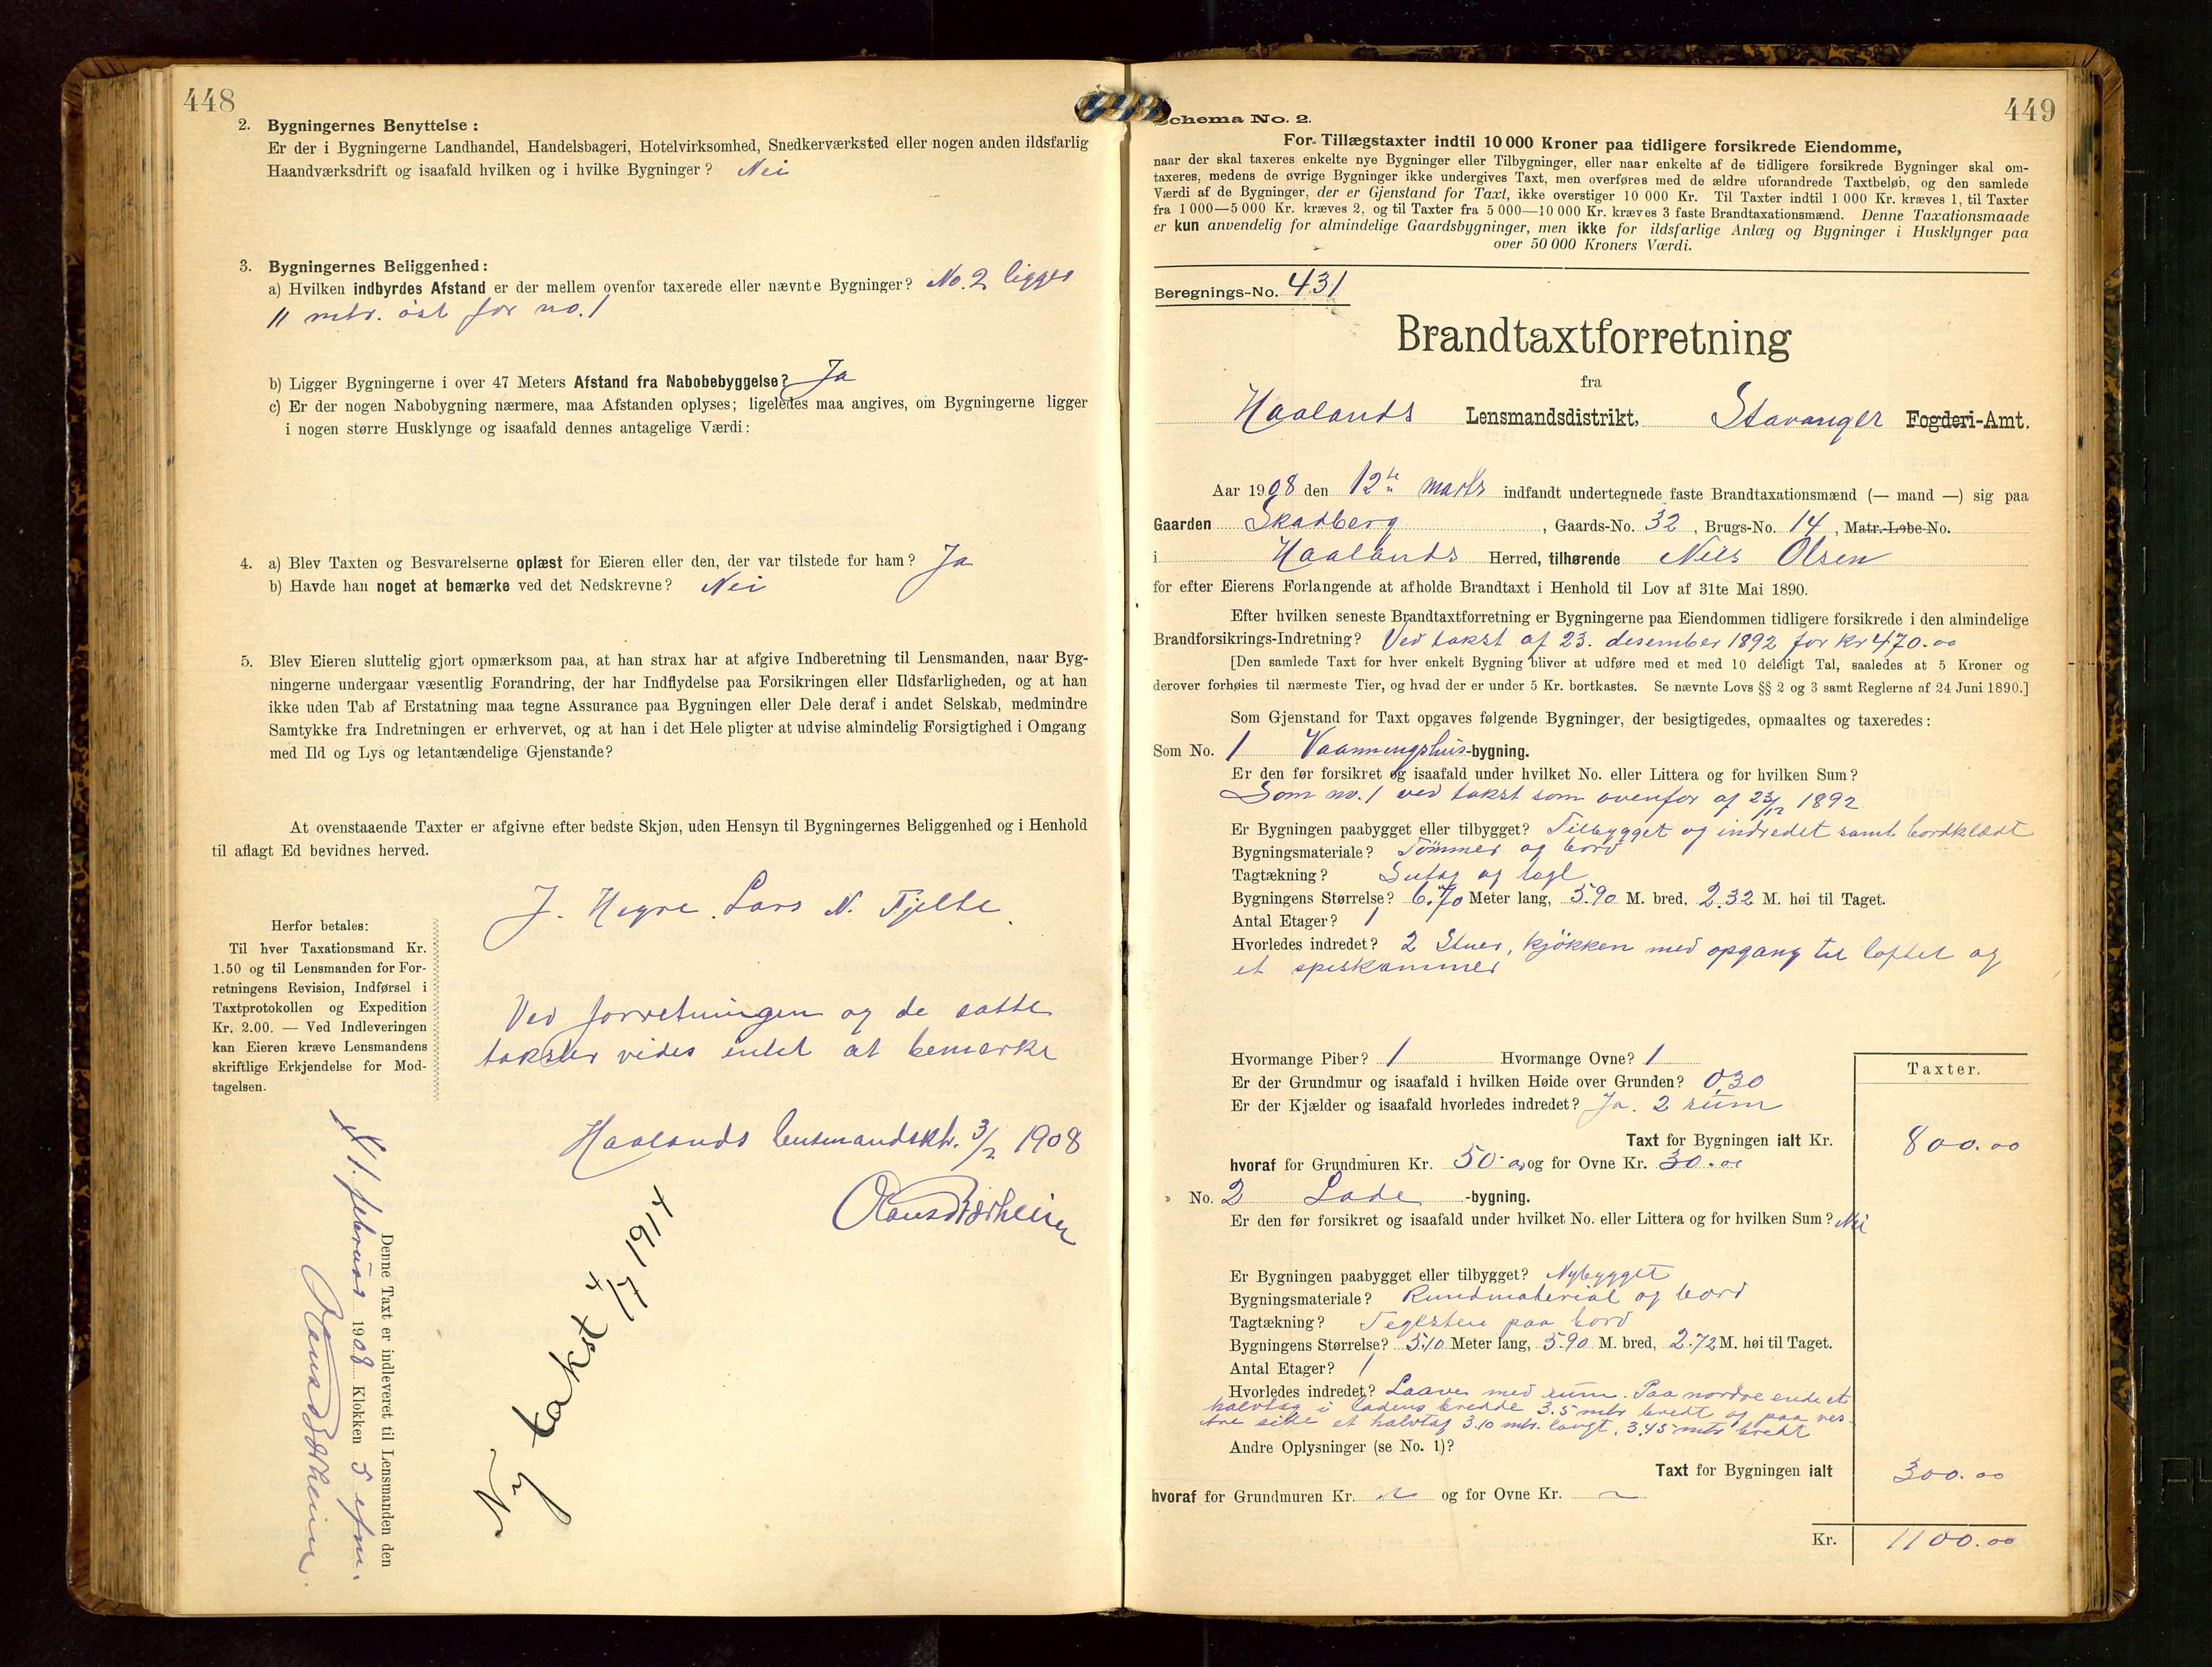 448
2. Bygningernes Benyttelse :
Er der i Bygningerne Landhandel, Handelsbageri, Hotelvirksomhed, Snedkerværksted eller nogen anden ildsfarlig
Haandværksdrift og isaafald hvilken og i hvilke Bygninger? Nei
3. Bygningernes Beliggenhed:
a) Hvilken indbyrdes Afstand er der mellem ovenfor taxerede eller nævnte Bygninger? No. 2 ligger
11 mtr. øst for no. 1
b) Ligger Bygningerne i over 47 Meters Afstand fra Nabobebyggelse? Ja
c) Er der nogen Nabobygning nærmere, maa Afstanden oplyses; ligeledes maa angives, om Bygningerne ligger
i nogen større Husklynge og isaafald dennes antagelige Værdi:
4. a) Blev Taxten og Besvarelserne oplæst for Eieren eller den, der var tilstede for ham? Ja
b) Havde han noget at bemærke ved det Nedskrevne? Nei
5. Blev Eieren sluttelig gjort opmærksom paa, at han strax har at afgive Indberetning til Lensmanden, naar Byg-
ningerne undergaar væsentlig Forandring, der har Indflydelse paa Forsikringen eller Ildsfarligheden, og at han
ikke uden Tab af Erstatning maa tegne Assurance paa Bygningen eller Dele deraf i andet Selskab, medmindre
Samtykke fra Indretningen er erhvervet, og at han i det Hele pligter at udvise almindelig Forsigtighed i Omgang
med Ild og Lys og letantændelige Gjenstande?
At ovenstaaende Taxter er afgivne efter bedste Skjøn, uden Hensyn til Bygningernes Beliggenhed og i Henhold
til aflagt Ed bevidnes herved.
J. Hegre. Lars N. Fjelde.
Herfor betales:
Til hver Taxationsmand Kr.
1.50 og til Lensmanden for For-
retningens Revision, Indførsel i
Taxtprotokollen og Expedition
Kr. 2.00. — Ved Indleveringen
kan Eieren kræve Lensmandens
skriftlige Erkjendelse for Mod-
tagelsen.
Ved forretningen og de satte
takster vides intet at bemærke
Haalands lensmandsktr. 3/2 1908
Ny takst 4/7 1914
Denne Taxt er indleveret til Lensmanden den
1. februar 1908 Klokken 5 efm.
449
Schema No. 2.
For Tillægstaxter indtil 10 000 Kroner paa tidligere forsikrede Eiendomme,
naar der skal taxeres enkelte nye Bygninger eller Tilbygninger, eller naar enkelte af de tidligere forsikrede Bygninger skal om-
taxeres, medens de øvrige Bygninger ikke undergives Taxt, men overføres med de ældre uforandrede Taxtbeløb, og den samlede
Værdi af de Bygninger, der er Gjenstand for Taxt, ikke overstiger 10 000 Kr. Til Taxter indtil 1 000 Kr. kræves 1, til Taxter
fra 1 000—5 000 Kr. kræves 2, og til Taxter fra 5 000—10 000 Kr. kræves 3 faste Brandtaxationsmænd. Denne Taxationsmaade
er kun anvendelig for almindelige Gaardsbygninger, men ikke for ildsfarlige Anlæg og Bygninger i Husklynger paa
over 50 000 Kroners Værdi.
Beregnings-No. 431
Brandtaxtforretning
fra
Haalands Lensmandsdistrikt, Stavanger Fogderi-Amt.
Aar 1908 den 12te marts indfandt undertegnede faste Brandtaxationsmænd (— mand —) sig paa
Gaarden Skadberg, Gaards-No. 32, Brugs-No. 14, Matr.-Løbe-No.
i Haalands Herred, tilhørende Niels Olsen
for efter Eierens Forlangende at afholde Brandtaxt i Henhold til Lov af 31te Mai 1890.
Efter hvilken seneste Brandtaxtforretning er Bygningerne paa Eiendommen tidligere forsikrede i den almindelige
Brandforsikrings-Indretning? Ved takst af 23. desember 1892 for kr 470.00
[Den samlede Taxt for hver enkelt Bygning bliver at udføre med et med 10 deleligt Tal, saaledes at 5 Kroner og
derover forhøies til nærmeste Tier, og hvad der er under 5 Kr. bortkastes. Se nævnte Lovs §§ 2 og 3 samt Reglerne af 24 Juni 1890.]
Som Gjenstand for Taxt opgaves følgende Bygninger, der besigtigedes, opmaaltes og taxeredes:
Som No. 1 Vaaningshus-bygning.
Er den før forsikret og isaafald under hvilket No. eller Littera og for hvilken Sum?
Som no. 1 ved takst som ovenfor af 23/12 1892
Er Bygningen paabygget eller tilbygget? Tilbygget og indredet samt bordklædt
Bygningsmateriale? Tømmer og bord
Tagtækning? Sutag og tagl
Bygningens Størrelse? 6.70 Meter lang, 5.90 M. bred. 2.32 M. høi til Taget.
Antal Etager? 1
Hvorledes indredet? 2 Stuer, kjøkken med opgang til loftet og
et spiskammer
Hvormange Piber? 1 Hvormange Ovne? 1
Er der Grundmur og isaafald i hvilken Høide over Grunden? 0,30
Er der Kjælder og isaafald hvorledes indredet? Ja. 2 rum
Taxter.
Taxt for Bygningen ialt Kr. 800.00
hvoraf for Grundmuren Kr. 50.00 og for Ovne Kr. 30.00
» No. 2 Lade -bygning.
Er den før forsikret og isaafald under hvilket No. eller Littera og for hvilken Sum? Nei
Er Bygningen paabygget eller tilbygget? Nybygget
Bygningsmateriale? Rundmaterial og bord
Tagtækning? Teglsten paa bord
Bygningens Størrelse? 5.10 Meter lang, 5.90 M. bred, 2.72 M. høi til Taget.
Antal Etager? 1
Hvorledes indredet? Laave med rum. Paa nordre ende et
halvtag i ladens bredde 3.5 mtr bredt og paa ves-
tre side et halvtag 3.10 mtr. langt, 3.45 mtr bredt
Andre Oplysninger (se No. 1)?
Taxt for Bygningen ialt 300.00
hvoraf for Grundmuren Kr. og for Ovne Kr.
Kr. 1100.00